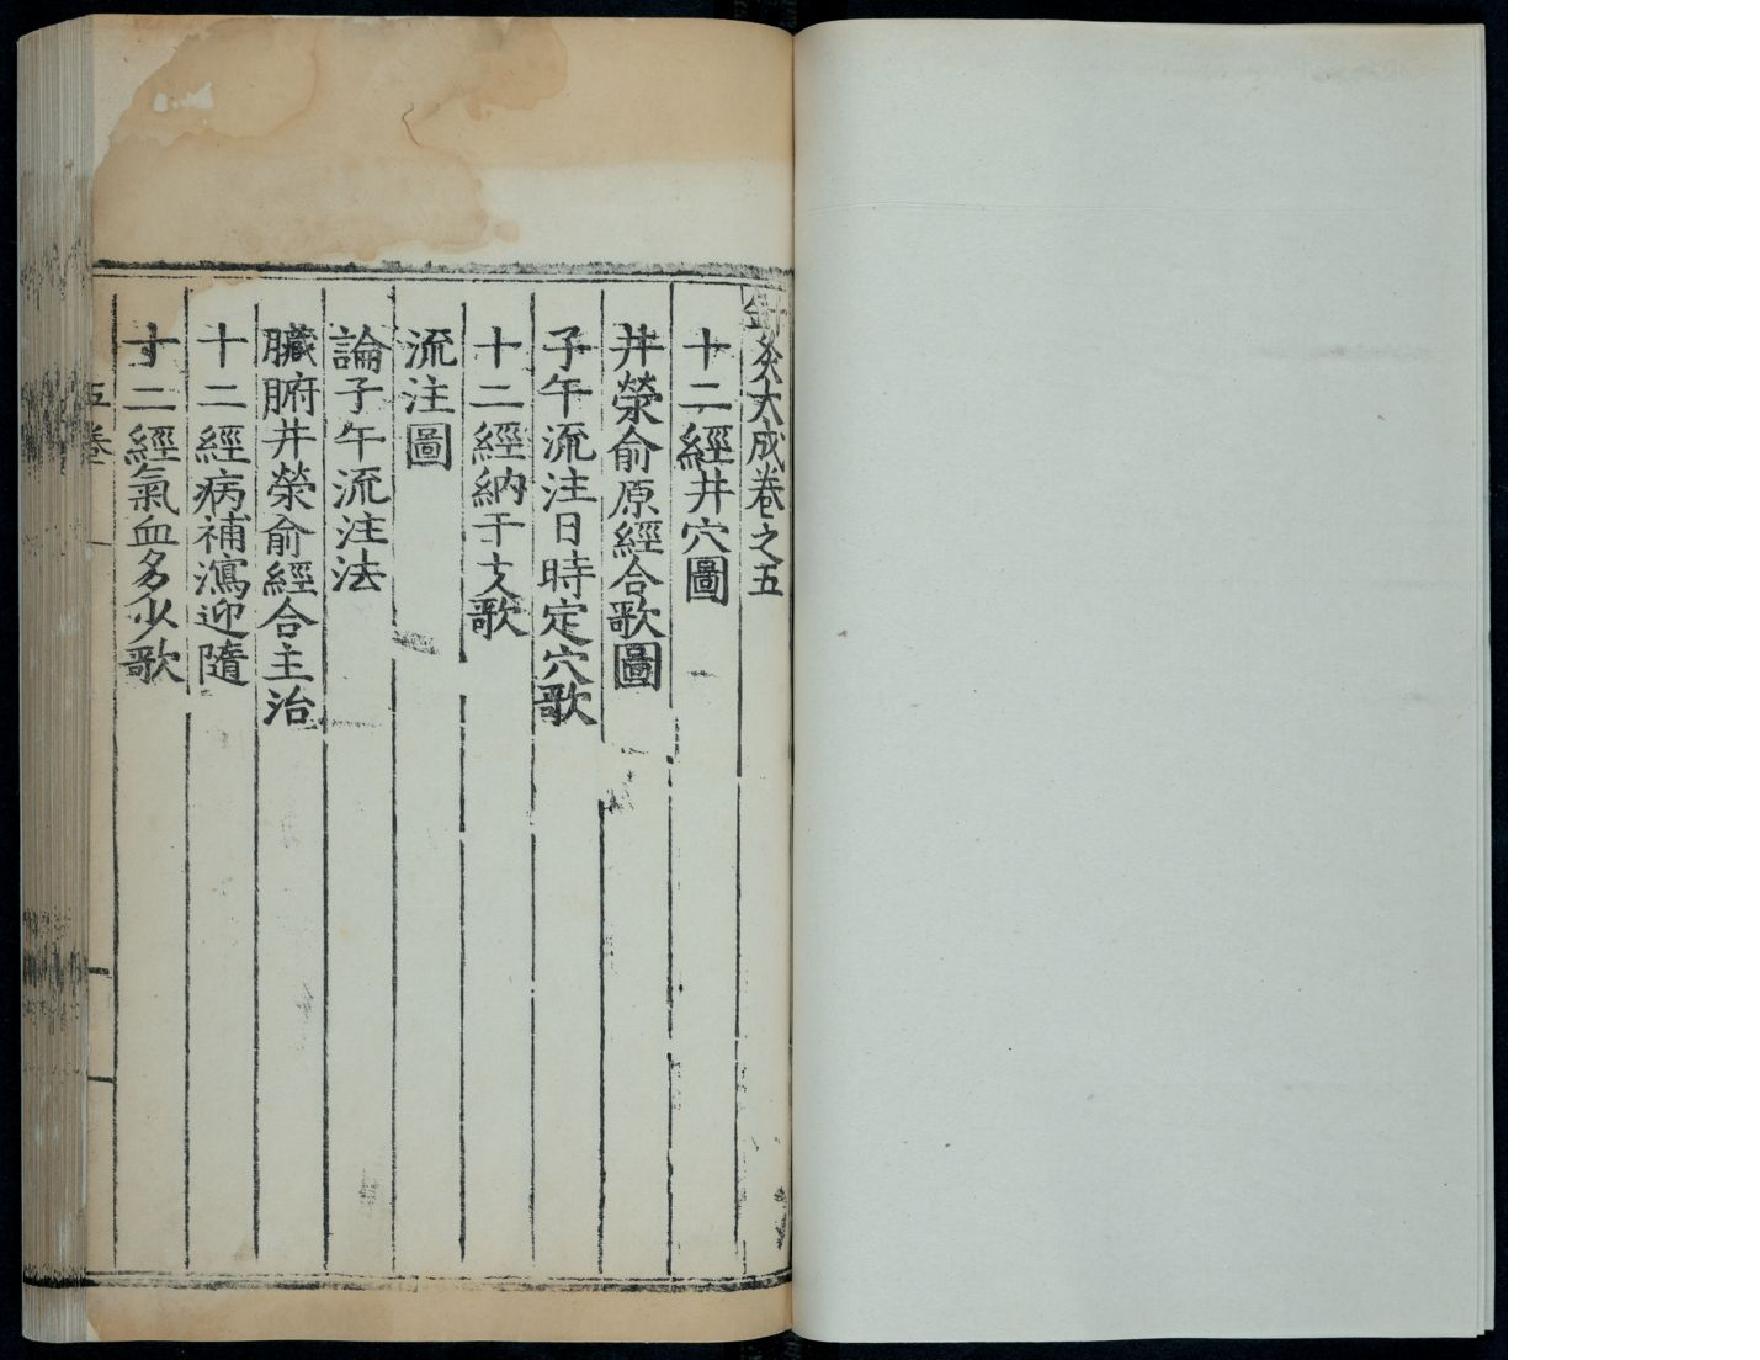 針灸大成卷之五
十二經井穴圖
井滎俞原經合歌圖
子午流注日時定穴歌
十二經納干支歌
流注圖
論子午流注法
臟腑井滎俞經合主治
十二經病補瀉迎隨
十二經氣血多少歌
五卷